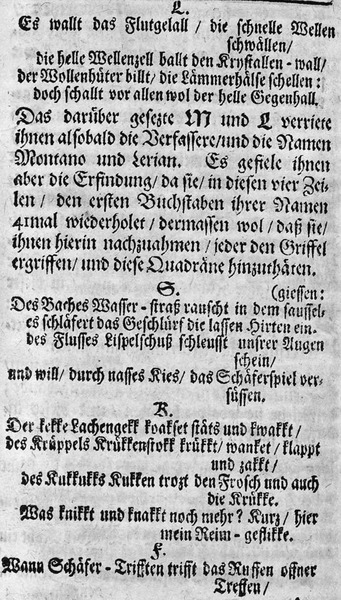 L.
Es wallt das Flutgelall / die schnelle Wellen
schwällen/
die helle Wellenzell ballt den Krystallen-wall/
der Wollenhüter billt/ die Lämmerhälse schellen:
doch schallt vor allen wol der helle Gegenhall.
Das darüber gesezte M und L verriete
ihnen alsobald die Verfassere/ und die Namen
Montano und Lerian. Es gefiele ihnen
aber die Erfindung/ da sie/ in diesen vier Zei-
len / den ersten Buchstaben ihrer Namen
41mal wiederholet / dermassen wol / daß sie/
ihnen hierin nachzuahmen / jeder den Griffel
ergriffen/ und diese Quadräne hinzuthäten.
S.
(giessen:
Des Baches Wasser-straß rauscht in dem saussel-
es schläfert das Geschlürf die lassen Hirten ein.
des Flusses Lispelschuß schleusst unsrer Augen
schein/
und will/ durch nasses Kies/ das Schäferspiel ver-
süssen.
K.
Der kekke Lachengekk koakset stäts und kwakkt/
des Krüppels Krükkenstokk krükkt/ wanket/ klappt
und zakkt/
des Kukkukks Kukken trozt den Frosch und auch
die Krükke.
Was knikkt und knakkt noch mehr? Kurz/ hier
mein Reim-geflikke.
F.
Wann Schäfer-Trifften trifft das Ruffen offner
Treffen/